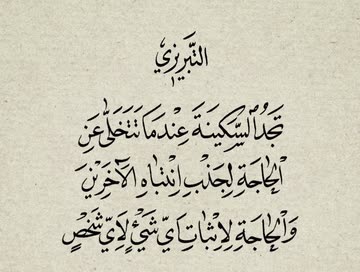 التَّبْرِيزِي
تَجِدُ السَّكِينَةَ عِنْدَمَا تَتَخَلَّى عَنِ
الْحَاجَةِ لِجَذْبِ انْتِبَاهِ الْآخَرِينَ
وَالْحَاجَةِ لِإِثْبَاتِ أَيِّ شَيْءٍ لِأَيِّ شَخْصٍ